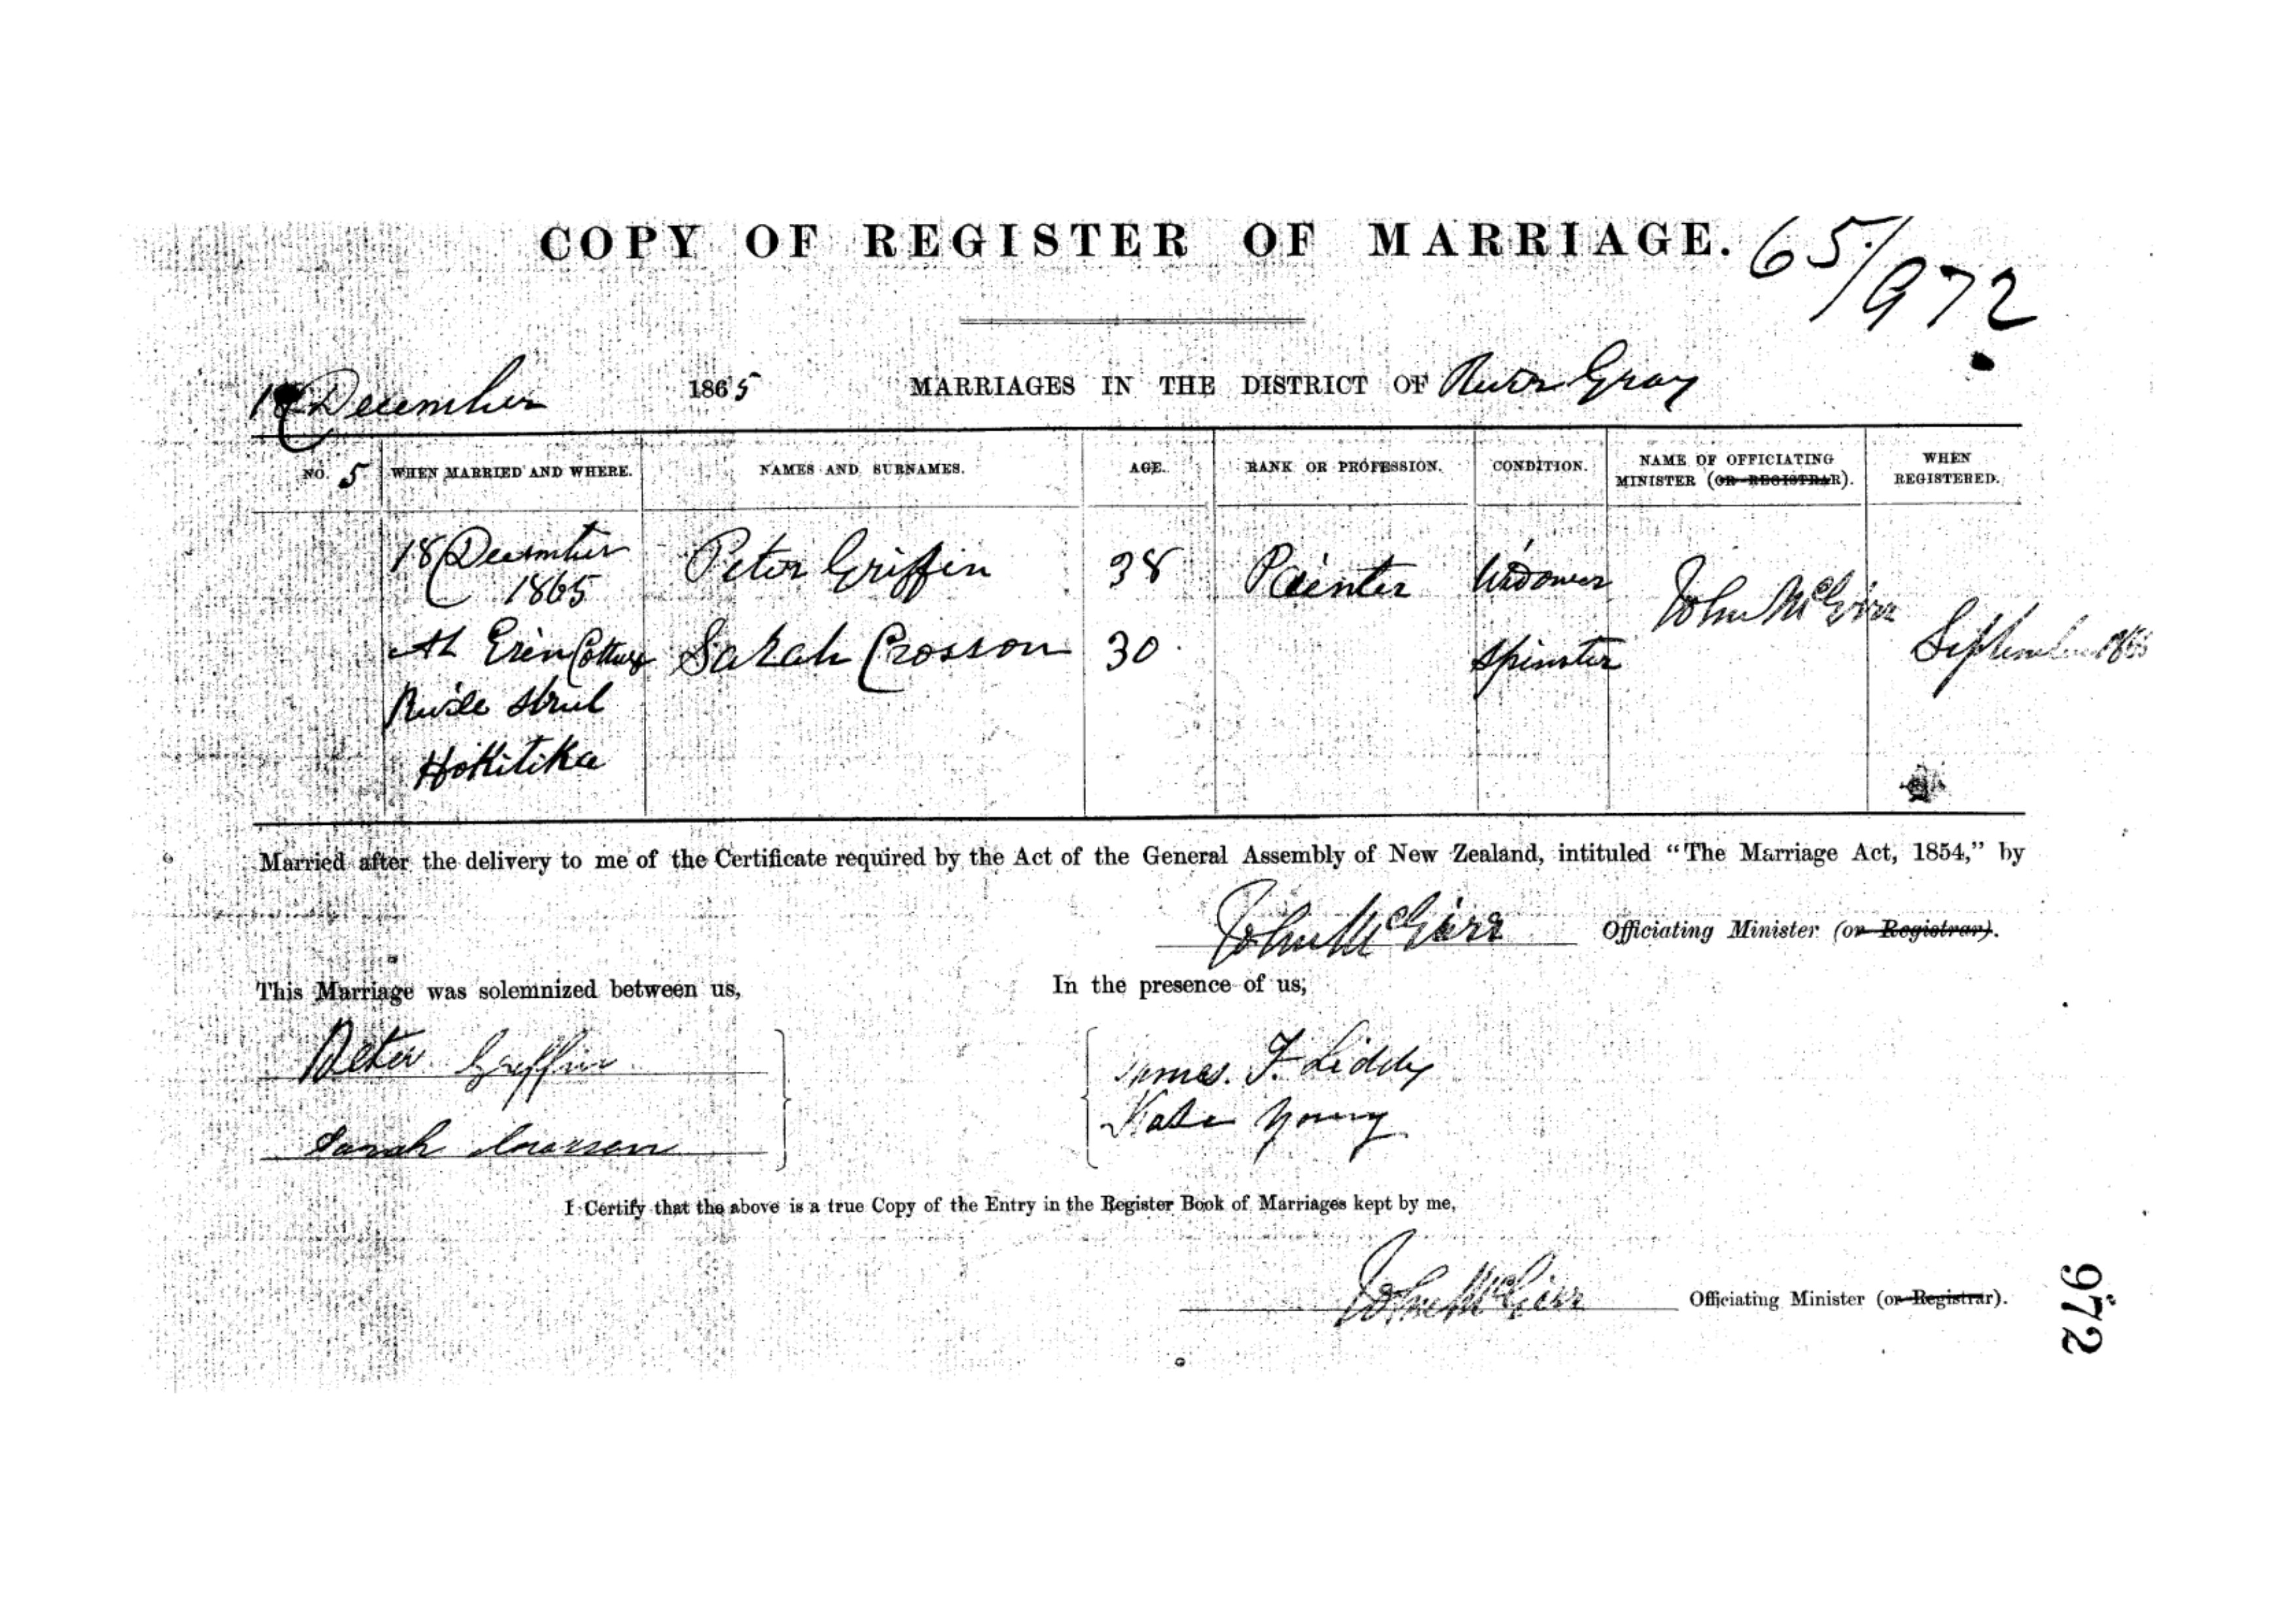 COPY OF REGISTER OF MARRIAGE. 65/972
18 December 1865 MARRIAGES IN THE DISTRICT OF River Gray
NO. 5 WHEN MARRIED AND WHERE. NAMES AND SURNAMES. AGE. RANK OR PROFESSION. CONDITION. NAME OF OFFICIATING MINISTER (OR REGISTRAR). WHEN REGISTERED.
18 December Peter Griffin 38 Painter Widower John McGirr
1865
At Erin Cottage Sarah Crosson 30 Spinster September
Street
Hokitika
Married after the delivery to me of the Certificate required by the Act of the General Assembly of New Zealand, intituled "The Marriage Act, 1854," by
John McGirr Officiating Minister (or Registrar).
This Marriage was solemnized between us, In the presence of us;
Peter Griffin James. F. Liddy
Sarah Crosson Kate Young
I Certify that the above is a true Copy of the Entry in the Register Book of Marriages kept by me,
John McGirr Officiating Minister (or Registrar).
972